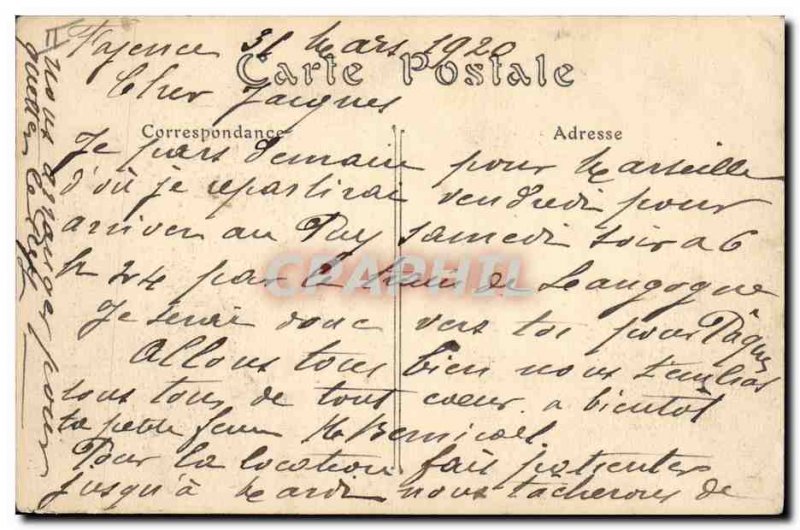 Fayence 31 Mars 1920
Carte Postale
Cher Jacques
Correspondance
Adresse
Je pars demain pour Marseille
d'où je repartirai vendredi pour
arriver au Puy samedi soir a 6
h 24 par le train de Langogne
CPAPHIL
Je serai donc vers toi pour Pâques
Allons tous bien nous t'embras
sons tous de tout coeur a bientôt
ta petite femme
Pour la location fait patienter
jusqu'à Mardi nous tâcherons de
nous arranger pour
quitter le Puy